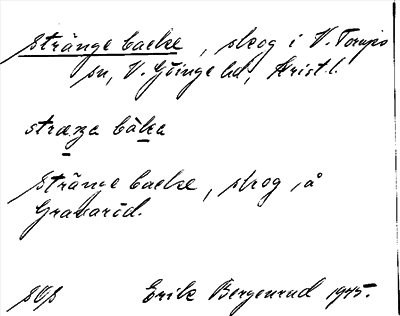 Stränge backe, skog i V. Torups
sn, V. Göinge hd, Krist. l.
stræŋa bàka
Stränge backe, skog, å
Gravaröd.
Erik Bergenrud 1945.